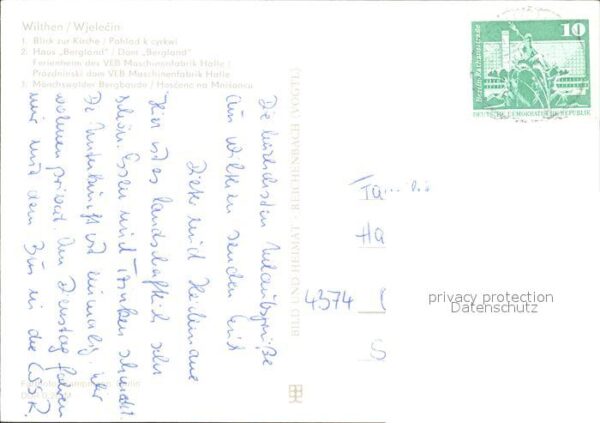 Wilthen / Wjelećin
1. Blick zur Kirche / Pohlad k cyrkwi
2. Haus „Bergland" / Dom „Bergland"
Ferienheim des VEB Maschinenfabrik Halle /
Prózdninski dom VEB Maschinenfabrik Halle
3. Mönchswalder Bergbaude / Hosćenc na Mnišoncu
Die herzlichsten Urlaubsgrüße
aus Wilthen senden Euch
Dieter und Heidemarie
Hier ist es landschaftlich sehr
schön. Essen und Trinken schmeckt.
Die Unterkunft ist einmalig, wir
wohnen privat. Am Dienstag fahren
wir mit dem Bus in die CSSR.
BILD UND HEIMAT · REICHENBACH (VOGTL)
10
Berlin, Rathausstraße
DEUTSCHE DEMOKRATISCHE REPUBLIK
Familie
Ha
4374
S
privacy protection
Datenschutz